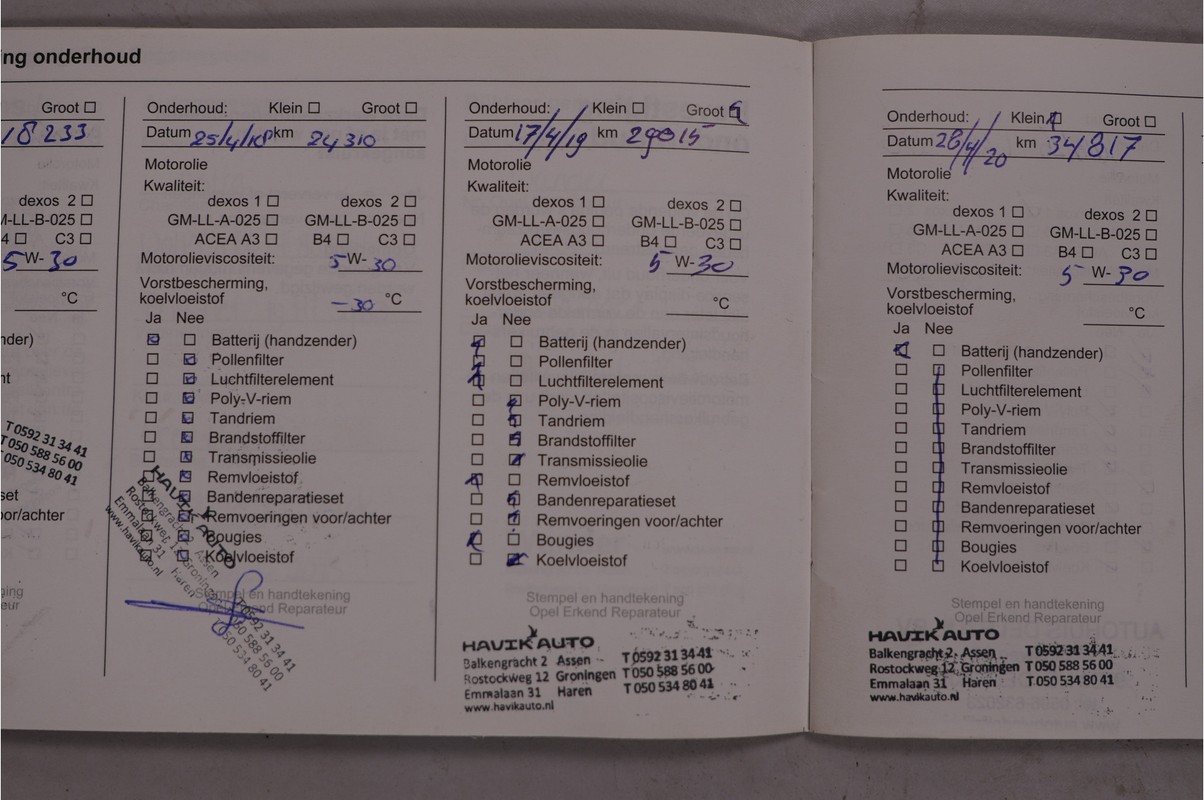 ng onderhoud
Groot ☐
18233
dexos 2 ☐
M-LL-B-025 ☐
4 ☐ C3 ☐
5 W-30
°C
nder)
nt
T 0592 31 34 41
T 050 588 56 00
T 050 534 80 41
set
oor/achter
ging
eur
Onderhoud: Klein ☐ Groot ☐
Datum 25/4/18 km 24310
Motorolie
Kwaliteit:
dexos 1 ☐ dexos 2 ☐
GM-LL-A-025 ☐ GM-LL-B-025 ☐
ACEA A3 ☐ B4 ☐ C3 ☐
Motorolieviscositeit: 5 W-30
Vorstbescherming,
koelvloeistof -30 °C
Ja Nee
☒ ☐ Batterij (handzender)
☐ ☒ Pollenfilter
☐ ☒ Luchtfilterelement
☐ ☒ Poly-V-riem
☐ ☒ Tandriem
☐ ☒ Brandstoffilter
☐ ☒ Transmissieolie
☐ ☒ Remvloeistof
☐ ☒ Bandenreparatieset
☐ ☒ Remvoeringen voor/achter
☐ ☒ Bougies
☐ ☒ Koelvloeistof
Stempel en handtekening
Opel Erkend Reparateur
HAVIK AUTO
Balkengracht 2 Assen T 0592 31 34 41
Rostockweg 12 Groningen T 050 588 56 00
Emmalaan 31 Haren T 050 534 80 41
www.havikauto.nl
Onderhoud: Klein ☐ Groot ☒
Datum 17/4/19 km 29815
Motorolie
Kwaliteit:
dexos 1 ☐ dexos 2 ☐
GM-LL-A-025 ☐ GM-LL-B-025 ☐
ACEA A3 ☐ B4 ☐ C3 ☐
Motorolieviscositeit: 5 W-30
Vorstbescherming,
koelvloeistof °C
Ja Nee
☒ ☐ Batterij (handzender)
☒ ☐ Pollenfilter
☒ ☐ Luchtfilterelement
☐ ☒ Poly-V-riem
☐ ☒ Tandriem
☐ ☒ Brandstoffilter
☐ ☒ Transmissieolie
☒ ☐ Remvloeistof
☐ ☒ Bandenreparatieset
☐ ☒ Remvoeringen voor/achter
☒ ☐ Bougies
☐ ☒ Koelvloeistof
Stempel en handtekening
Opel Erkend Reparateur
HAVIK AUTO
Balkengracht 2 Assen T 0592 31 34 41
Rostockweg 12 Groningen T 050 588 56 00
Emmalaan 31 Haren T 050 534 80 41
www.havikauto.nl
Onderhoud: Klein ☒ Groot ☐
Datum 28/4/20 km 34817
Motorolie
Kwaliteit:
dexos 1 ☐ dexos 2 ☐
GM-LL-A-025 ☐ GM-LL-B-025 ☐
ACEA A3 ☐ B4 ☐ C3 ☐
Motorolieviscositeit: 5 W-30
Vorstbescherming,
koelvloeistof °C
Ja Nee
☒ ☐ Batterij (handzender)
☐ ☐ Pollenfilter
☐ ☐ Luchtfilterelement
☐ ☐ Poly-V-riem
☐ ☐ Tandriem
☐ ☐ Brandstoffilter
☐ ☐ Transmissieolie
☐ ☐ Remvloeistof
☐ ☐ Bandenreparatieset
☐ ☐ Remvoeringen voor/achter
☐ ☐ Bougies
☐ ☐ Koelvloeistof
Stempel en handtekening
Opel Erkend Reparateur
HAVIK AUTO
Balkengracht 2 Assen T 0592 31 34 41
Rostockweg 12 Groningen T 050 588 56 00
Emmalaan 31 Haren T 050 534 80 41
www.havikauto.nl